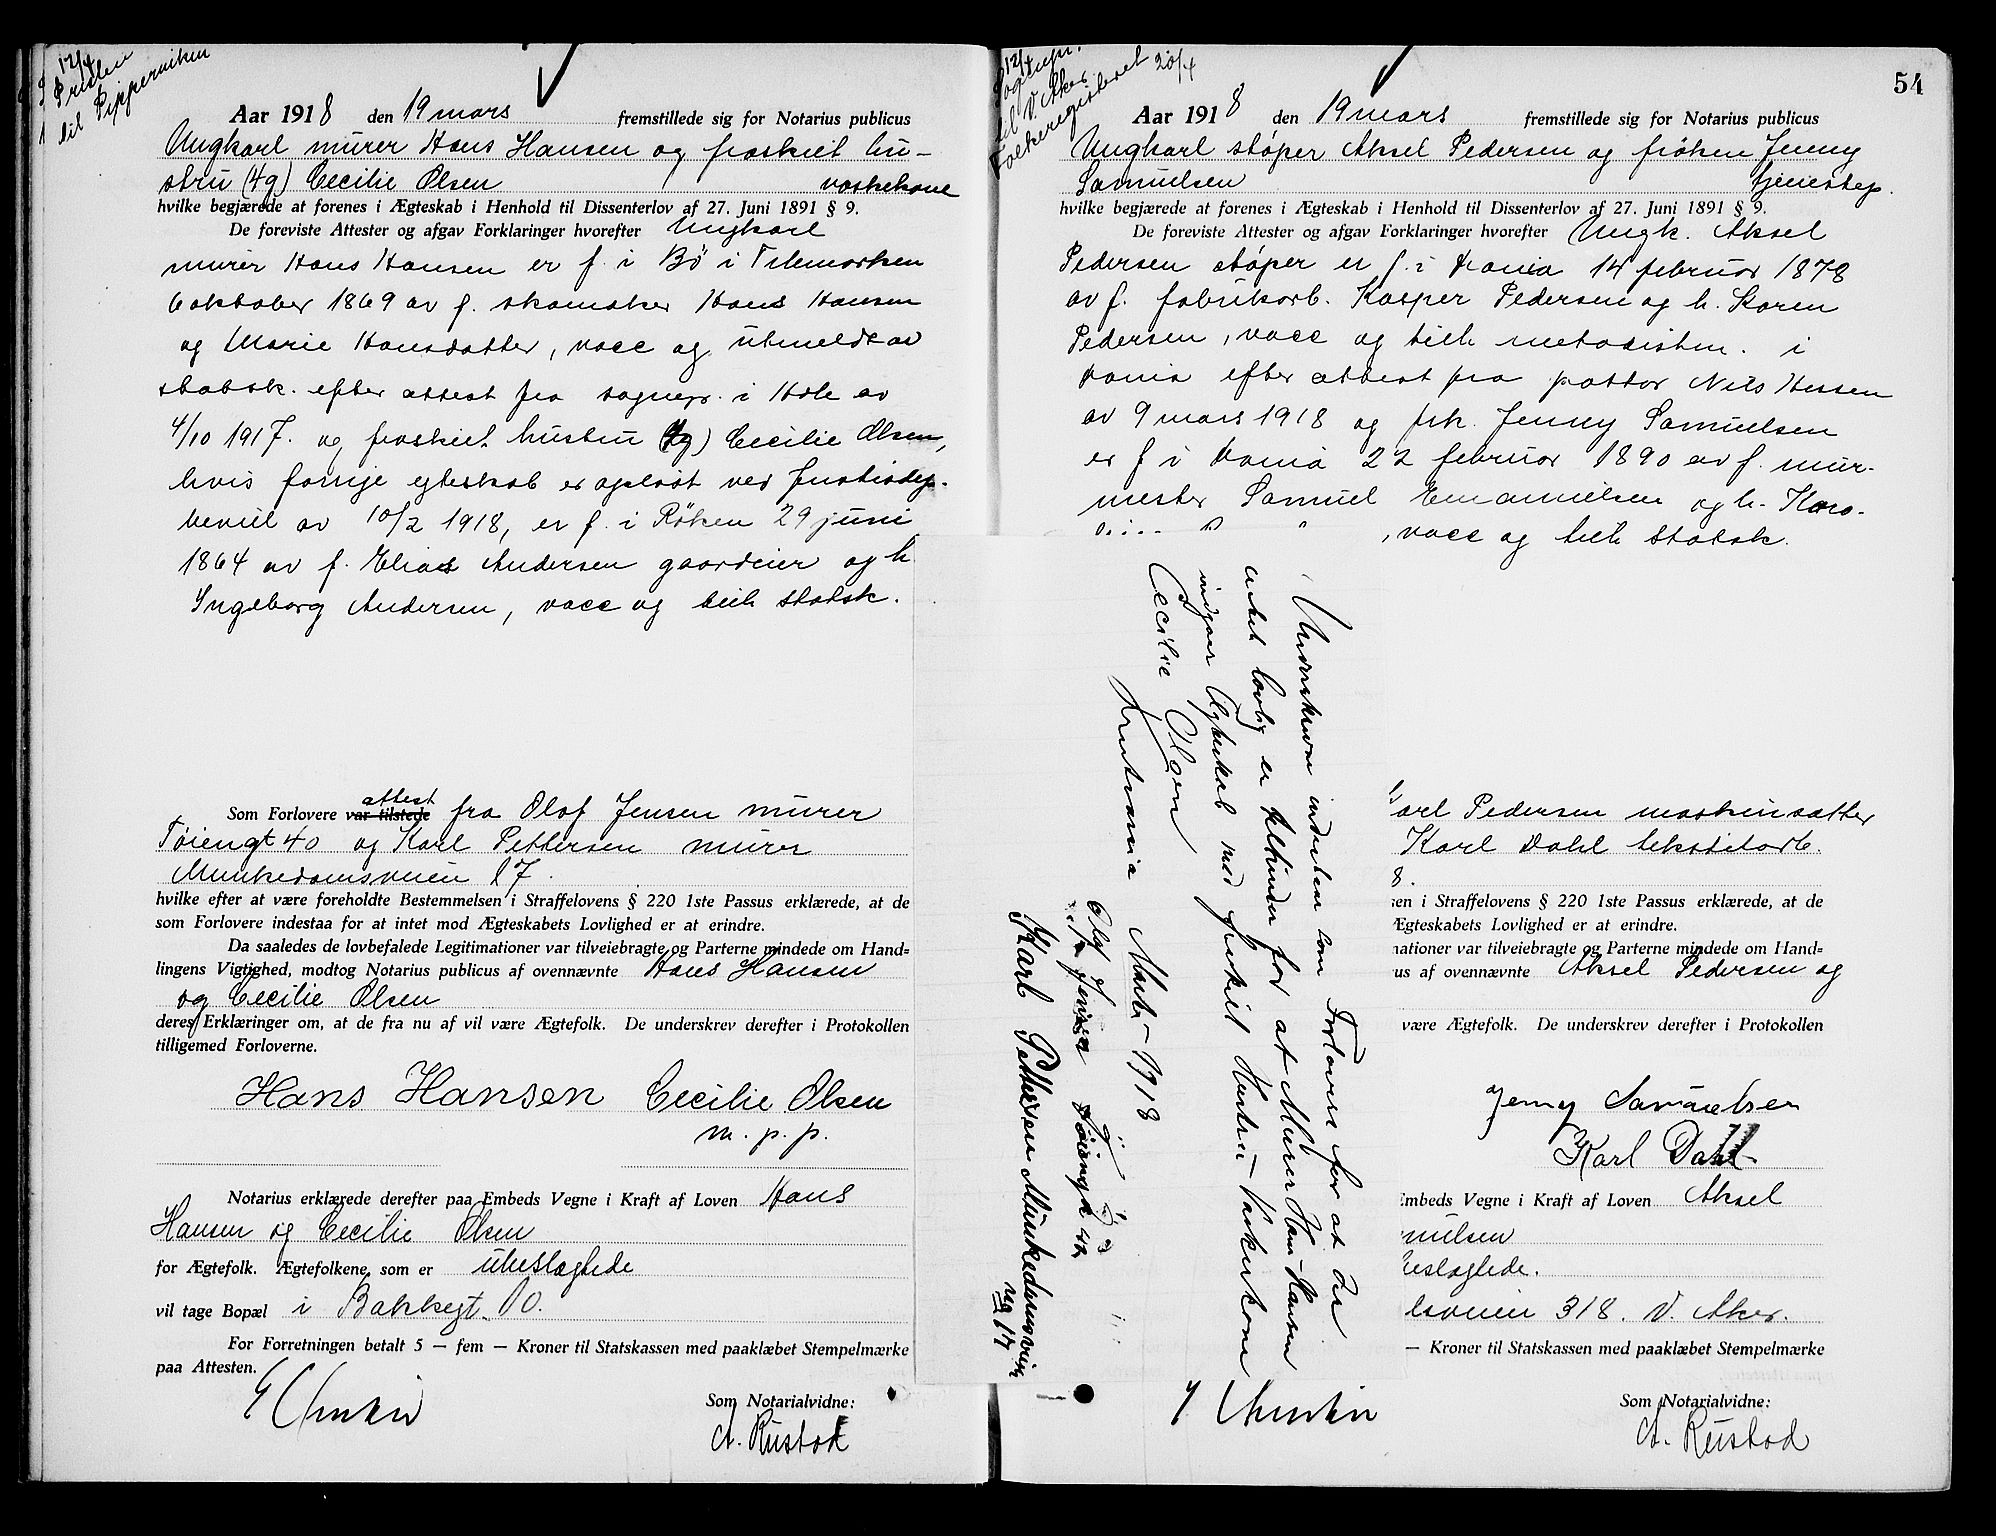 12/4
Presten
til Pipperviken
Aar 1918 den 19 mars fremstillede sig for Notarius publicus
Ungkarl murer Hans Hansen og fraskilt hu-
stru (4g) Cecilie Olsen vaskekone
hvilke begjærede at forenes i Ægteskab i Henhold til Dissenterlov af 27. Juni 1891 § 9.
De foreviste Attester og afgav Forklaringer hvorefter Ungkarl
murer Hans Hansen er f. i Bö i Telemarken
6 oktober 1869 av f. skomaker Hans Hansen
og Marie Hansdatter, vacc og utmeldt av
statsk. efter attest fra sognepr. i Hole av
4/10 1917. og fraskilt hustru (4g) Cecilie Olsen,
hvis forrige egteskab er opløst ved Justisdep.
bevil av 10/2 1918, er f. i Röken 29 juni
1864 av f. Elias Andersen gaardeier og h.
Ingeborg Andersen, vacc og tilh statsk.
Som Forlovere var tilstede attest fra Olaf Jensen murer
Töiengt 40 og Karl Pettersen murer
Munkedamsveien 17.
hvilke efter at være foreholdte Bestemmelsen i Straffelovens § 220 1ste Passus erklærede, at de
som Forlovere indestaa for at intet mod Ægteskabets Lovlighed er at erindre.
Da saaledes de lovbefalede Legitimationer var tilveiebragte og Parterne mindede om Hand-
lingens Vigtighed, modtog Notarius publicus af ovennævnte Hans Hansen
og Cecilie Olsen
deres Erklæringer om, at de fra nu af vil være Ægtefolk. De underskrev derefter i Protokollen
tilligemed Forloverne.
Hans Hansen Cecilie Olsen
m. p. p.
Notarius erklærede derefter paa Embeds Vegne i Kraft af Loven Hans
Hansen og Cecilie Olsen
for Ægtefolk. Ægtefolkene, som er ubeslægtede
vil tage Bopæl i Bakkegt. 10.
For Forretningen betalt 5 — fem — Kroner til Statskassen med paaklæbet Stempelmærke
paa Attesten.
Som Notarialvidne:
A. Rustad
Underskrevne indestaar som Forlovere for at der
intet lovlig er til hinder for at Murer Hans Hansen
indgaar Ægteskab med fraskilt Hustru Vaskekone
Cecilie Olsen
Kristiania Marts 1918
Olaf Jensen Töiengt 40
Karl Pettersen Munkedamsveien
no 17
54
12/4
Sognepr.
til V. Aker
Folkeregisteret 20/4
Aar 1918 den 19 mars fremstillede sig for Notarius publicus
Ungkarl støper Aksel Pedersen og frøken Jenny
Samuelsen tjenestep.
hvilke begjærede at forenes i Ægteskab i Henhold til Dissenterlov af 27. Juni 1891 § 9.
De foreviste Attester og afgav Forklaringer hvorefter Ungk. Aksel
Pedersen støper er f. i Krania 14 februar 1878
av f. fabrikarb. Kasper Pedersen og h. Karen
Pedersen, vacc og tilh metodistm. i
Krania efter attest fra pastor Nils
av 9 mars 1918 og frk. Jenny Samuelsen
er f i Krania 22 februar 1890 av f. mur-
mester Samuel Emanuelsen og h. Karo-
, vacc og tilh statsk.
Karl Pedersen maskinsætter
Karl Dahl tekstilarb.
8.
en i Straffelovens § 220 1ste Passus erklærede, at de
Ægteskabets Lovlighed er at erindre.
nationer var tilveiebragte og Parterne mindede om Hand-
us af ovennævnte Aksel Pedersen og
være Ægtefolk. De underskrev derefter i Protokollen
Jenny Samuelsen
Karl Dahl
Embeds Vegne i Kraft af Loven Aksel
muelsen
beslægtede.
lsveien 318. V. Aker.
— Kroner til Statskassen med paaklæbet Stempelmærke
Som Notarialvidne:
A. Rustad